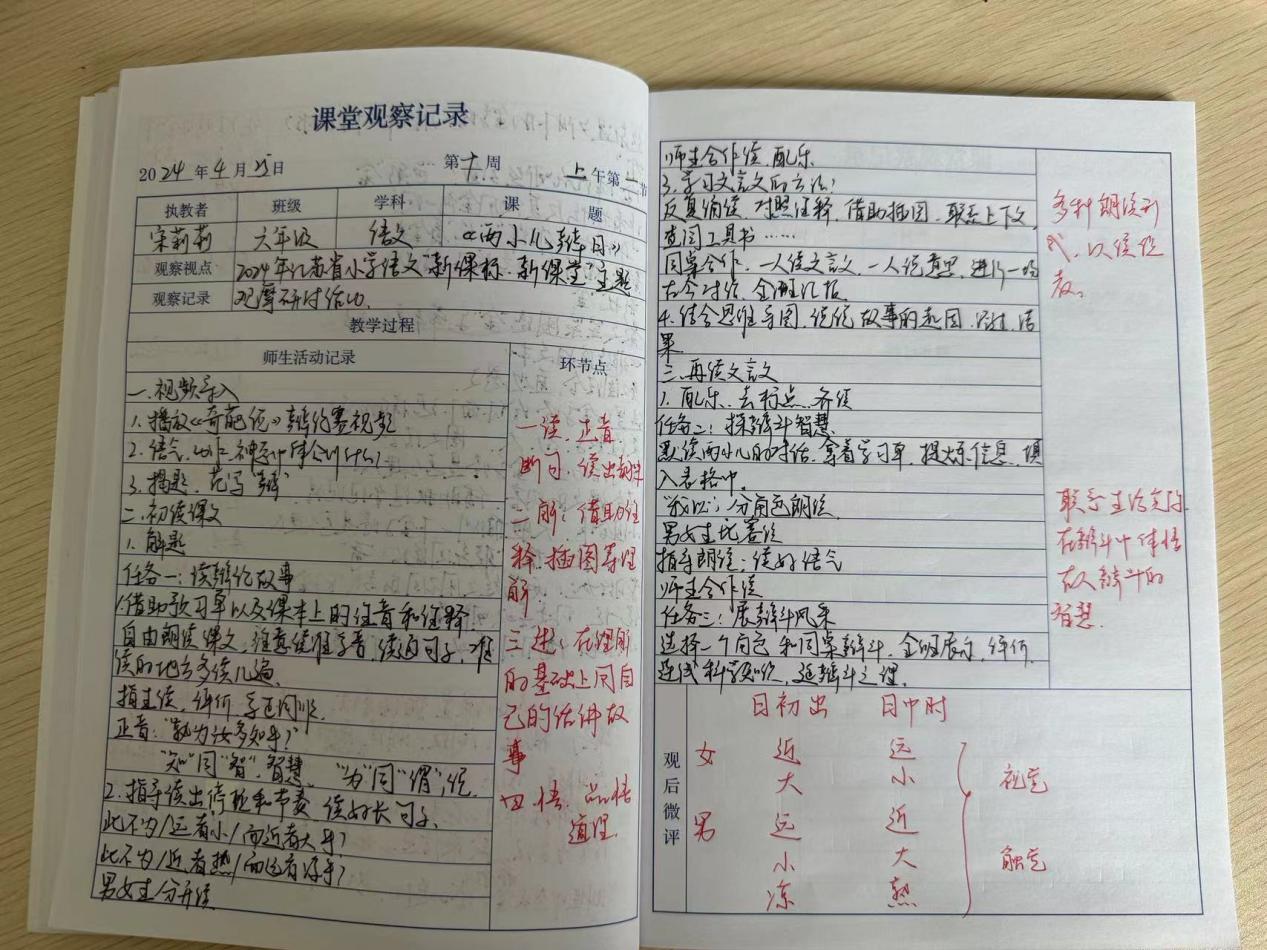 课堂观察记录
2024年4月25日 第十周 上午第二节
执教者 班级 学科 课题
宋莉莉 六年级 语文 《两小儿辩日》
观察视点 2024年江苏省小学语文"新课标·新课堂"主题
观察记录 观摩研讨活动.
教学过程
师生活动记录
一.视频导入
1.播放《奇葩说》辩论赛视频
2.语气、动作、神态
3.揭题,范写"辩"
二.初读课文
1.解题
任务一:读辩论故事
1.借助预习单以及课本上的注音和注释
自由朗读课文,注意读准字音,读通句子,难
读的地方多读几遍.
指生读,评价
正音:"孰为汝多知乎?"
"知"同"智",智慧 "为"同"谓",说.
2.指导读出停顿和节奏 读好长句子.
此不为/远者小/而近者大乎?
此不为/近者热/而远者凉乎?
男女生分开读
环节点
一读.正音.
断句,读出韵味
二解:借助注
释.插图等理
解
三述:在理解
的基础上用自
己的话讲故
事
四悟.品悟
道理.
师生合作读.配乐
3.学习文言文的方法:
反复诵读.对照注释,借助插图.联系上下文.
查阅工具书……
同桌合作.一人读文言文,一人说意思,进行一场
古今对话.全班汇报
4.结合思维导图,说说故事的起因.经过.结
果.
三.再读文言文
1.配乐.去标点.齐读
任务二:探辩斗智慧.
默读两小儿的对话,拿着学习单,提炼信息,填
入表格中.
"我以":分角色朗读
男女生比赛读
指导朗读:读好语气
师生合作读
任务三:展辩斗风采
选择一个角色和同桌辩斗.全班展示,评价.
连线科学知识,延辩斗之课.
多种朗读形
式,以读促
教.
联系生活实际
在辩斗中体悟
古人辩斗的
智慧.
观后微评
日初出 日中时
女 近 远
大 小 视觉
男 远 近
小 大 触觉
凉 热